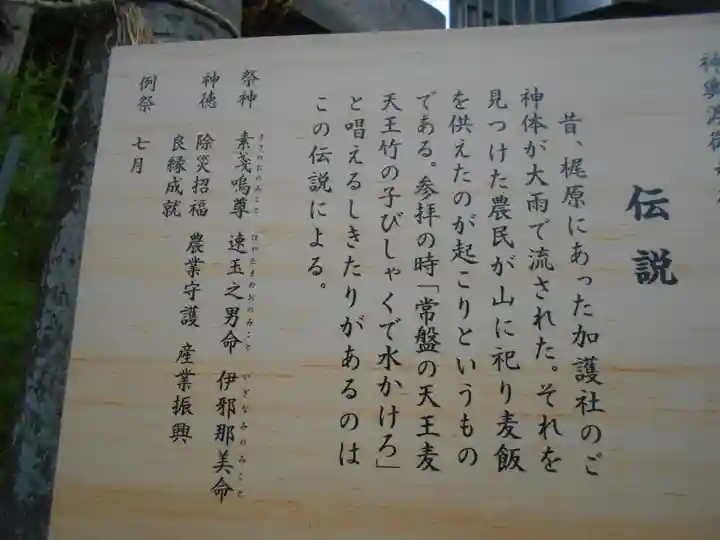 伝説
昔、梶原にあった加護社のご
神体が大雨で流された。それを
見つけた農民が山に祀り麦飯
を供えたのが起こりというもの
である。参拝の時「常盤の天王麦
天王竹の子びしゃくで水かけろ」
と唱えるしきたりがあるのは
この伝説による。
祭神 素戔嗚尊 速玉之男命 伊邪那美命
すさのおのみこと はやたまのおのみこと いざなみのみこと
神徳 除災招福 農業守護 産業振興
良縁成就
例祭 七月